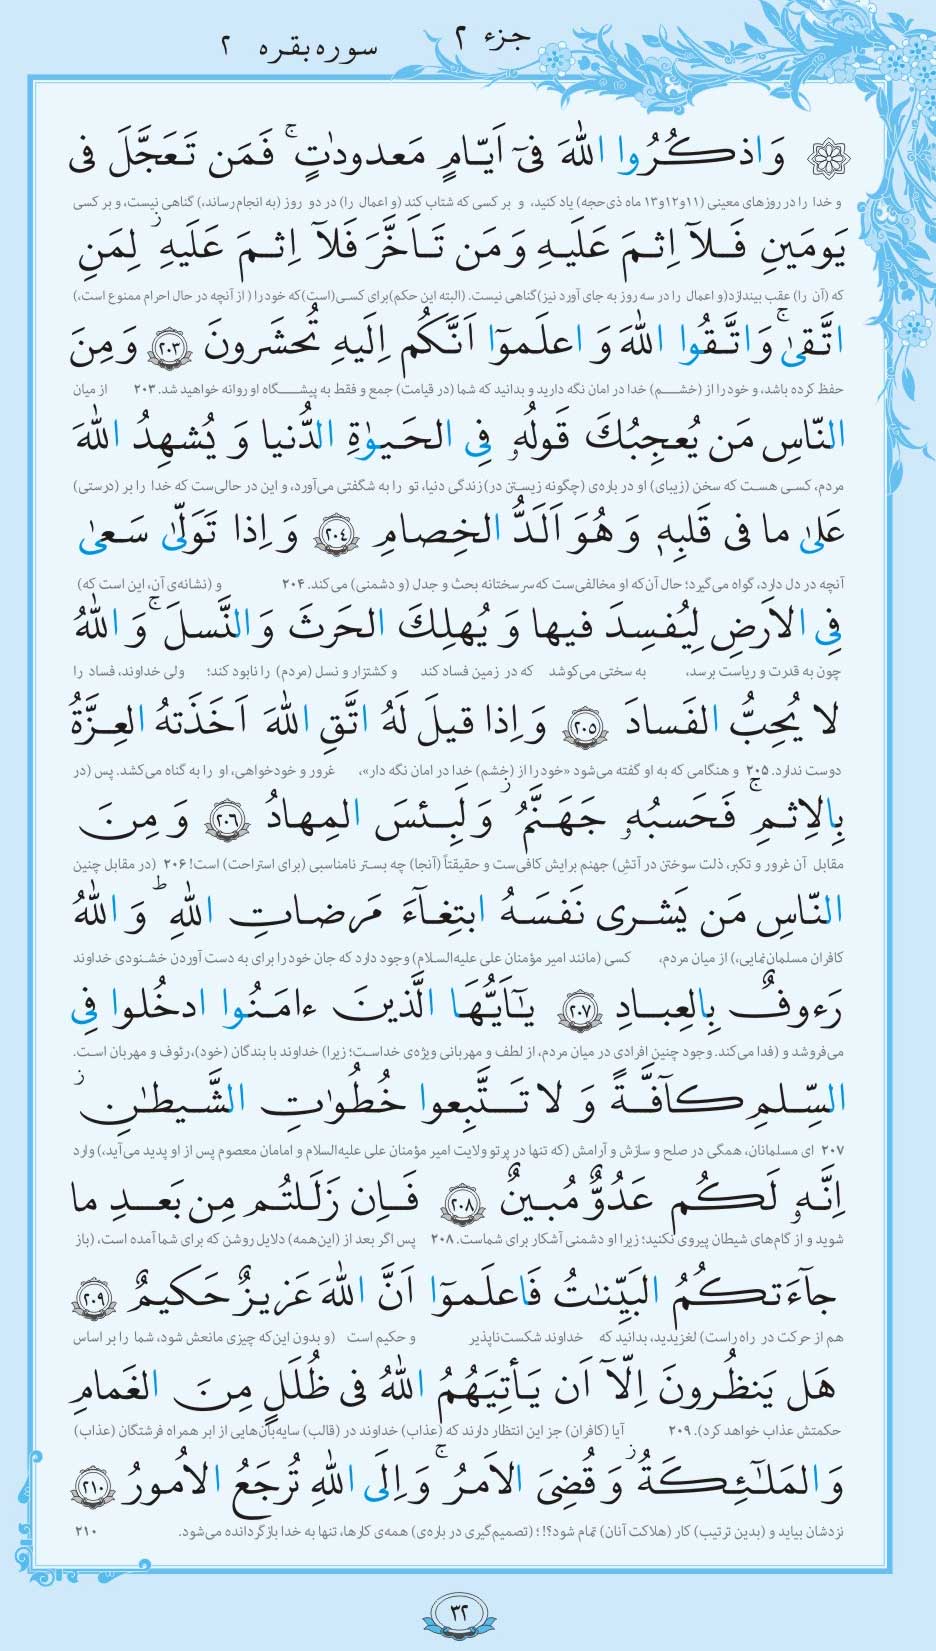 جزء ۲
سوره بقره ۲
وَاذكُرُوا اللّٰهَ فىٓ اَيّامٍ مَعدودٰتٍ ۚ فَمَن تَعَجَّلَ فى
و خدا را در روزهای معینی (۱۱و۱۲و۱۳ ماه ذی‌حجه) یاد کنید، و بر کسی که شتاب کند (و اعمال را) در دو روز (به انجام رساند،) گناهی نیست، و بر کسی
يَومَينِ فَلآ اِثمَ عَلَيهِ وَ مَن تَاَخَّرَ فَلآ اِثمَ عَلَيهِ ۫ لِمَنِ
که (آن را) عقب بیندازد(و اعمال را در سه روز به جای آورد نیز)گناهی نیست. (البته این حکم)برای کسی(است)که خود را ( از آنچه در حال احرام ممنوع است،)
اتَّقىٰ ۚ وَاتَّقُوا اللّٰهَ وَ اعلَموٓا اَنَّكُم اِلَيهِ تُحشَرونَ ﴿۲۰۳﴾ وَ مِنَ
حفظ کرده باشد، و خود را از (خشـم) خدا در امان نگه دارید و بدانید که شما (در قیامت) جمع و فقط به پیشـگاه او روانه خواهید شد. ۲۰۳ از میان
النّاسِ مَن يُعجِبُكَ قَولُهُۥ فِى الحَيوٰةِ الدُّنيا وَ يُشهِدُ اللّٰهَ
مردم، کسی هست که سخن (زیبای) او در باره‌ی (چگونه زیستن در)زندگی دنیا، تو را به شگفتی می‌آورد، و این در حالی‌ست که خدا را بر (درستی)
عَلىٰ ما فى قَلبِهٖ وَ هُوَ اَلَدُّ الخِصامِ ﴿۲۰۴﴾ وَ اِذا تَوَلّىٰ سَعىٰ
آنچه در دل دارد، گواه می‌گیرد؛ حال آن‌که او مخالفی‌ست که سر سختانه بحث و جدل (و دشمنی) می‌کند. ۲۰۴ و (نشانه‌ی آن، این است که)
فِى الاَرضِ لِيُفسِدَ فيها وَ يُهلِكَ الحَرثَ وَالنَّسلَ ۚ وَاللّٰهُ
چون به قدرت و ریاست برسد، به سختی می‌کوشد که در زمین فساد کند و کشتزار و نسل (مردم) را نابود کند؛ ولی خداوند، فساد را
لا يُحِبُّ الفَسادَ ﴿۲۰۵﴾ وَ اِذا قيلَ لَهُ اتَّقِ اللّٰهَ اَخَذَتهُ العِزَّةُ
دوست ندارد. ۲۰۵ و هنگامی که به او گفته می‌شود «خود را از (خشم) خدا در امان نگه دار»، غرور و خودخواهی، او را به گناه می‌کشد. پس (در
بِالاِثمِ ۚ فَحَسبُهُۥ جَهَنَّمُ ۫ وَ لَبِئسَ المِهادُ ﴿۲۰۶﴾ وَ مِنَ
مقابل آن غرور و تکبر، ذلت سوختن در آتش) جهنم برایش کافی‌ست و حقیقتاً (آنجا) چه بستر نامناسبی (برای استراحت) است! ۲۰۶ (در مقابل چنین
النّاسِ مَن يَشرى نَفسَهُ ابتِغآءَ مَرضاتِ اللّٰهِ ؕ وَاللّٰهُ
کافران مسلمان‌نمایی،) از میان مردم، کسی (مانند امیر مؤمنان علی علیه‌السلام) وجود دارد که جان خود را برای به دست آوردن خشنودی خداوند
رَءوفٌ بِالعِبادِ ﴿۲۰۷﴾ يٰٓاَيُّهَا الَّذينَ ءامَنُوا ادخُلوا فِى
می‌فروشد و (فدا می‌کند. وجود چنین افرادی در میان مردم، از لطف و مهربانی ویژه‌ی خداست؛ زیرا) خداوند با بندگان (خود)، رئوف و مهربان است.
السِّلمِ كآفَّةً وَ لا تَتَّبِعوا خُطُوٰتِ الشَّيطٰنِ ۫
۲۰۷ ای مسلمانان، همگی در صلح و سازش و آرامش (که تنها در پرتو ولایت امیر مؤمنان علی علیه‌السلام و امامان معصوم پس از او پدید می‌آید،) وارد
اِنَّهُۥ لَكُم عَدُوٌّ مُبينٌ ﴿۲۰۸﴾ فَاِن زَلَلتُم مِن بَعدِ ما
شوید و از گام‌های شیطان پیروی نکنید؛ زیرا او دشمنی آشکار برای شماست. ۲۰۸ پس اگر بعد از (این‌همه) دلایل روشن که برای شما آمده است، (باز
جآءَتكُمُ البَيِّنٰتُ فَاعلَموٓا اَنَّ اللّٰهَ عَزيزٌ حَكيمٌ ﴿۲۰۹﴾
هم از حرکت در راه راست) لغزیدید، بدانید که خداوند شکست‌ناپذیر و حکیم است (و بدون این‌که چیزی مانعش شود، شما را بر اساس
هَل يَنظُرونَ اِلّآ اَن يَأتِيَهُمُ اللّٰهُ فى ظُلَلٍ مِنَ الغَمامِ
حکمتش عذاب خواهد کرد). ۲۰۹ آیا (کافران) جز این انتظار دارند که (عذاب) خداوند در (قالب) سایه‌بان‌هایی از ابر همراه فرشتگان (عذاب)
وَالمَلٰٓئِكَةُ ۫ وَ قُضِىَ الاَمرُ ۚ وَ اِلَى اللّٰهِ تُرجَعُ الاُمورُ ﴿۲۱۰﴾
نزدشان بیاید و (بدین ترتیب) کار (هلاکت آنان) تمام شود؟!؛ (تصمیم‌گیری در باره‌ی) همه‌ی کارها، تنها به خدا بازگردانده می‌شود. ۲۱۰
۳۲